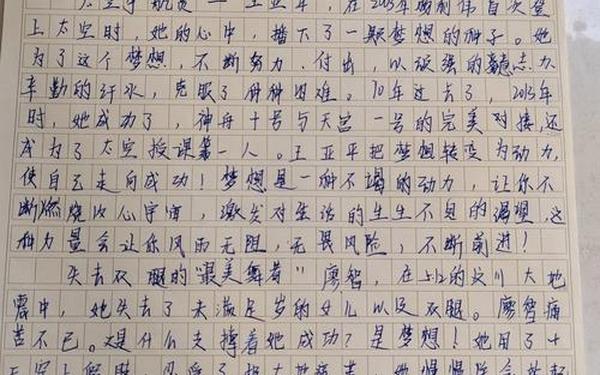 太空宇航员——王亚平，在2003年杨利伟首次登
上太空时，她的心中，播下了一颗梦想的种子。她
为了这个梦想，不断努力、付出，以顽强的意志力、
辛勤的汗水，克服了种种困难。10年过去了，2013年
时，她成功了，神舟十号与天宫一号的完美对接，还
成为了太空授课第一人。王亚平把梦想转变为动力，
使自己走向成功！梦想是一种不竭的动力，让你不
断燃烧内心宇宙，激发对生活的生生不息的渴望，这
种力量会让你风雨无阻，无畏风险，不断前进！
失去双腿的“最美舞者”廖智，在5.12的汶川大地
震中，她失去了未满足岁的女儿以及双腿。廖智痛
苦不已。是什么支撑着她成功？是梦想！她用了十